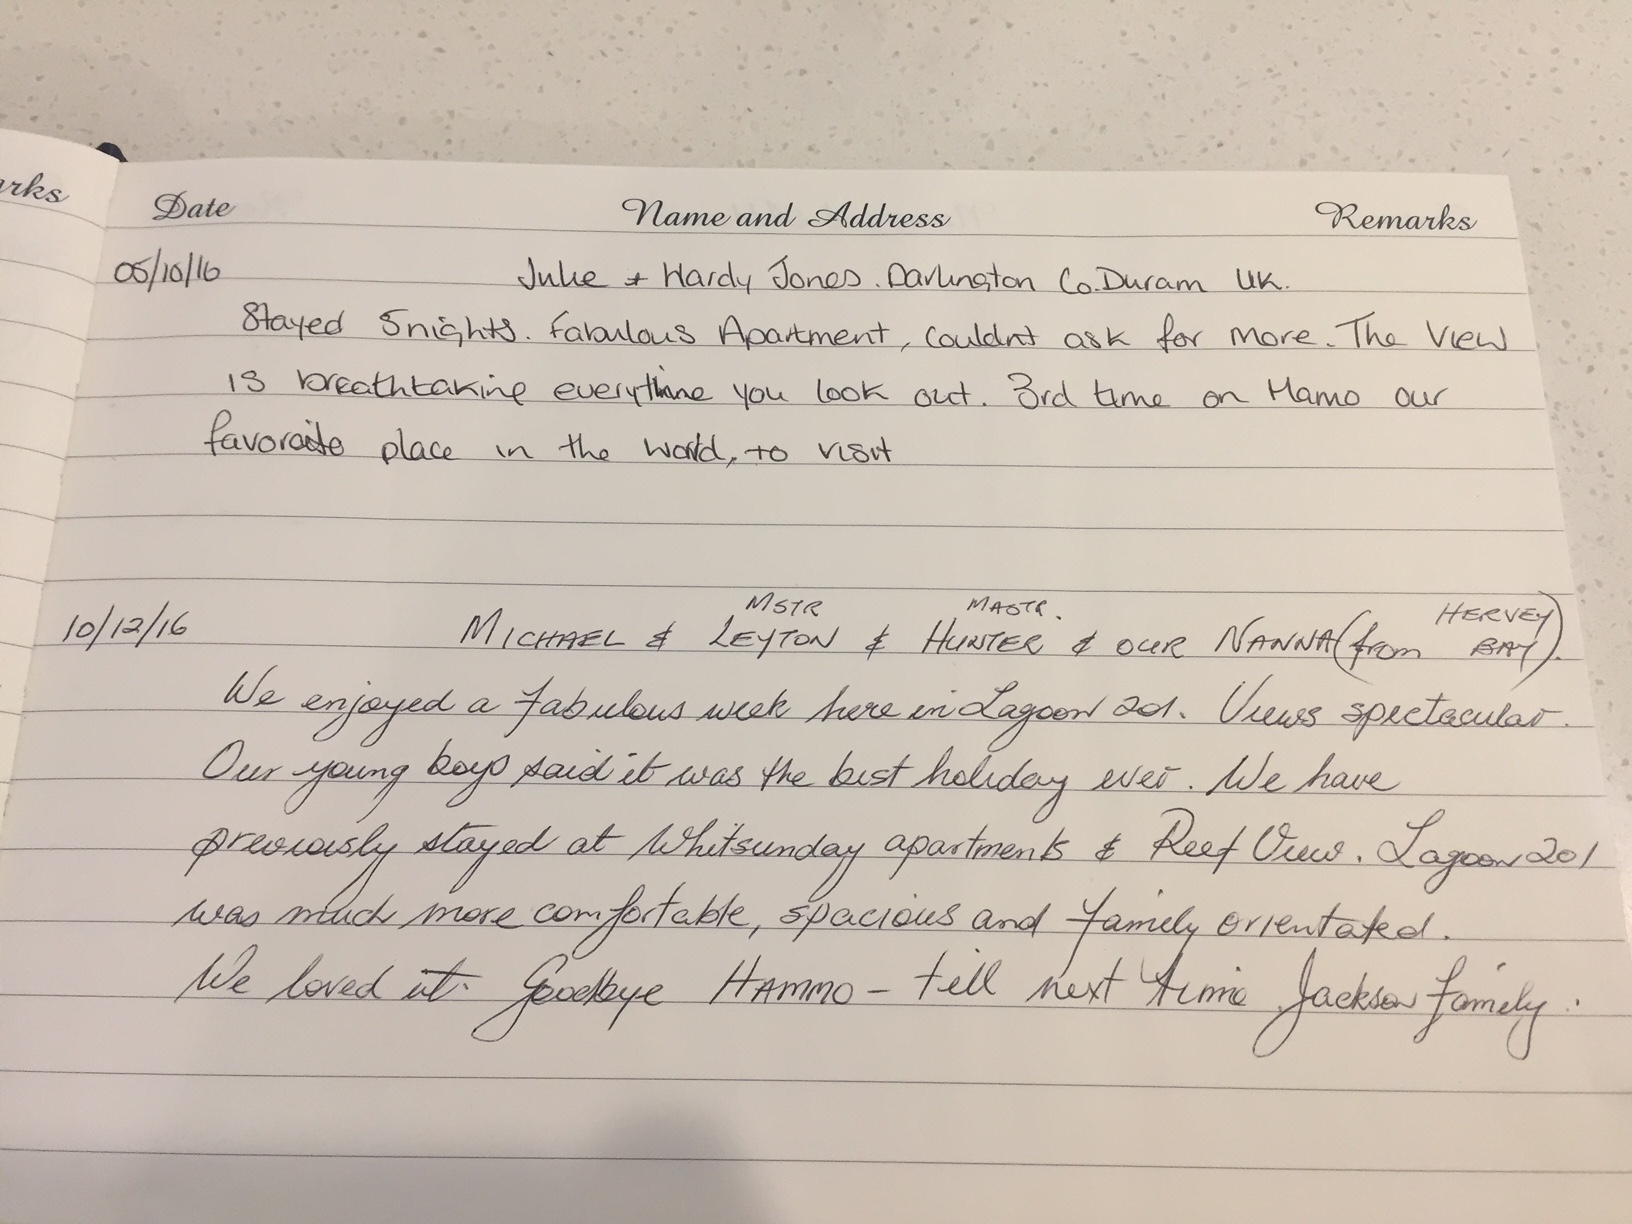 arks
Date Name and Address Remarks
05/10/16 Julie + Hardy Jones. Darlington Co. Duram UK.
Stayed 5 nights. Fabulous Apartment, couldnt ask for more. The View
is breathtaking everythine you look out. 3rd time on Hamo our
favoraite place in the world, to visit
MSTR MASTR. HERVEY
10/12/16 MICHAEL & LEYTON & HUNTER & OUR NANNA (from BAY).
We enjoyed a fabulous week here in Lagoon 201. Views spectacular.
Our young boys said it was the best holiday ever. We have
previously stayed at Whitsunday apartments & Reef View. Lagoon 201
was much more comfortable, spacious and family orientated.
We loved it. Goodbye HAMMO - till next time Jackson family.